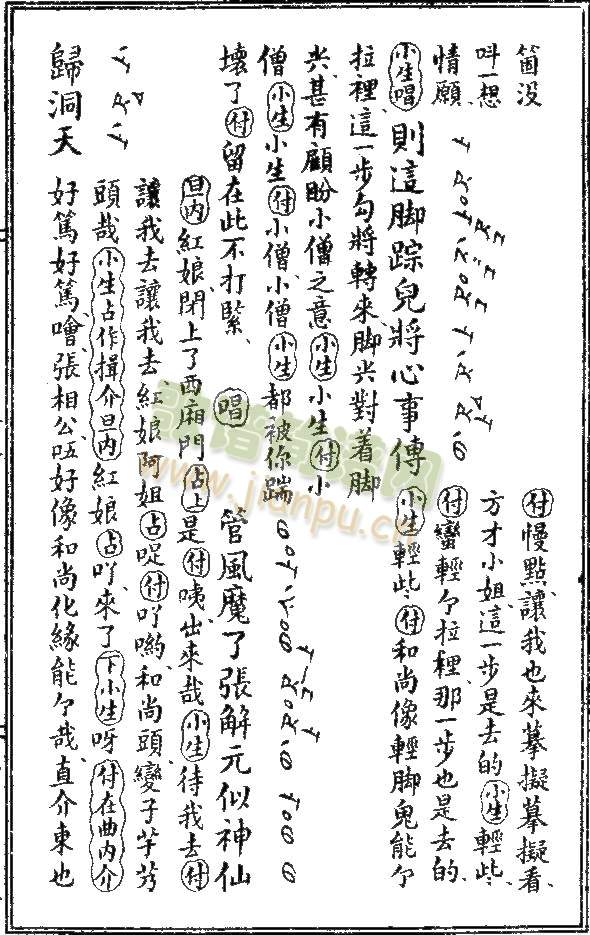 箇沒 付慢點讓我也來摹擬摹擬看
呌一想 方才小姐這一步是去的小生輕些
情願 付蠻輕个拉裡那一步也是去的
小生唱則這脚踪兒將心事傳小生輕些付和尚像輕脚鬼能个
拉裡這一步勾將轉來脚尖對着脚
尖甚有顧盼小僧之意小生小生付小
僧小生小生付小僧小僧小生都被你踹
壞了付留在此不打緊 唱 管風魔了張解元似神仙
旦內紅娘閉上了西廂門占上是付咦出來哉小生待我去付
讓我去讓我去紅娘阿姐占啶付吖喲和尚頭變子芋艿
頭哉小生占作揖介旦內紅娘占吖來了下小生呀付在曲內介
歸洞天 好篤好篤噲張相公㕶好像和尚化緣能个哉直介東也
歌譜簡譜网
www.jianpu.cn